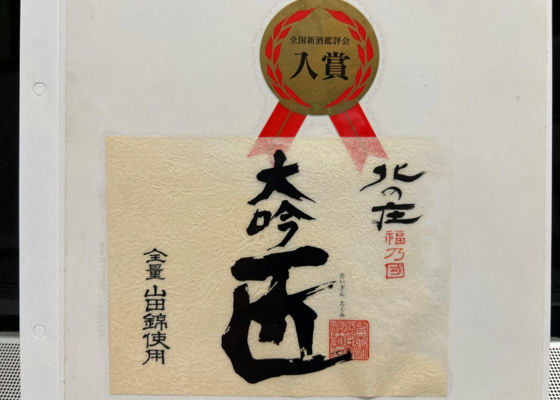 全国新酒鑑評会
入賞
北の庄
福乃國
大吟
匠
だいぎん たくみ
全量 山田錦使用